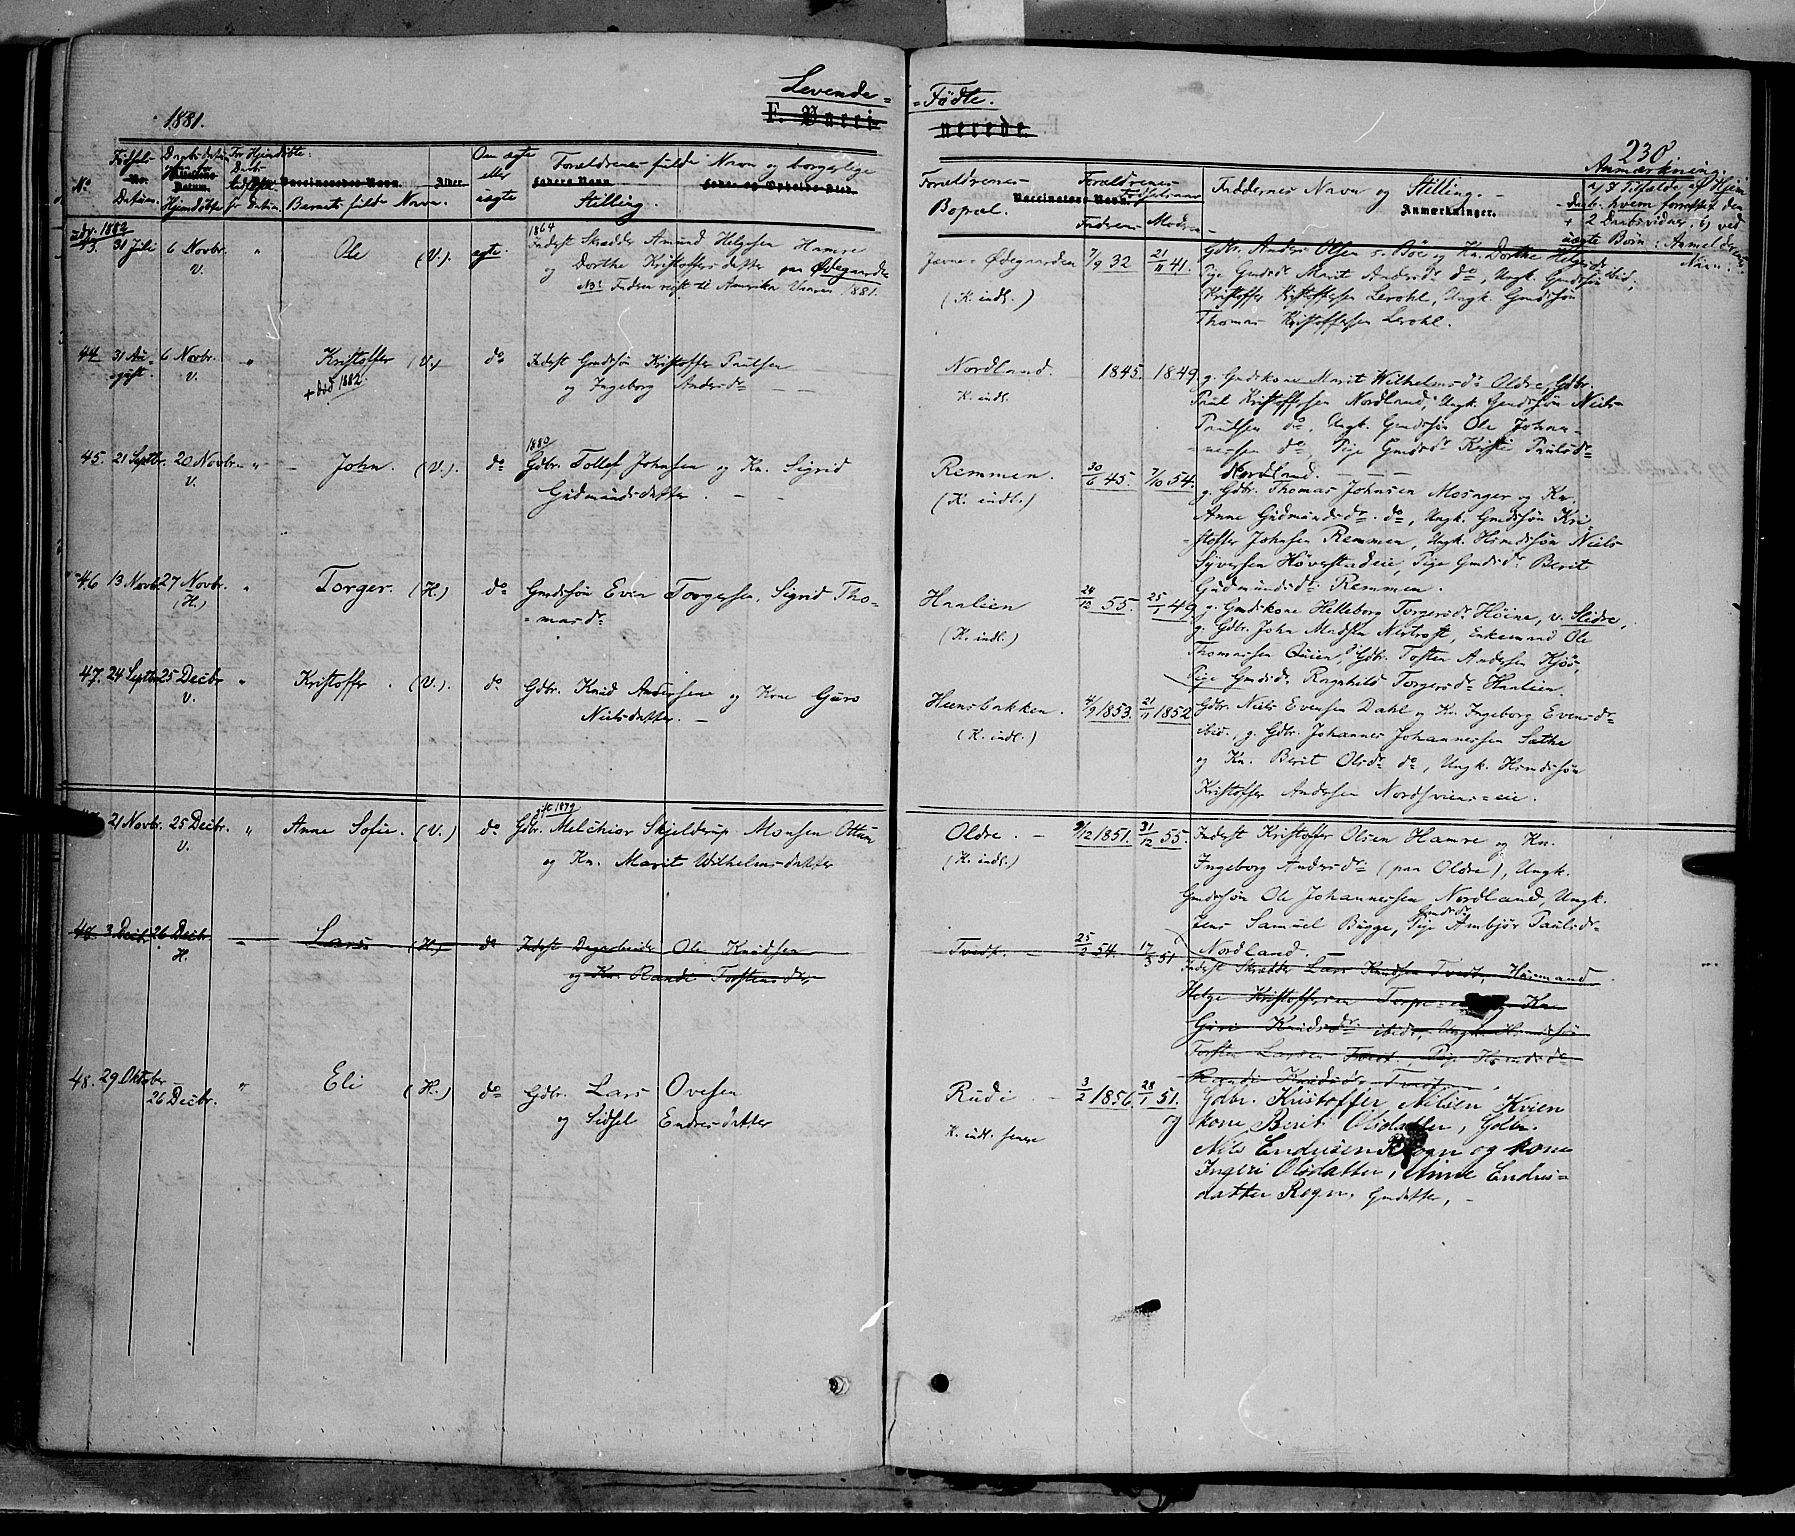 1881.
Levende=
F. Vacci-
=Fødte.
nerede.
230
No
Fødsels-
Datum.
Daabsdatum
Hjemdøbte
For Hjemdøbte:
Barnets fulde Navn.
Alder.
Om ægte
eller
uægte
Forældrenes fulde Navn og borgerlige
Stilling.
Forældrenes
Bopæl.
Forældrenes
Faderens Moderens
Faddernes Navn og Stilling.
Anmærkninger.
43. 31 Juli 6 Novbr. V. " Ole (V.) ægte
1864
Inderst Skrædder Amund Helgesen Hamre
og Dorthe Kristoffersdatter paa Ødegaarden
NB: Faderen reist til Amerika Vaaren 1881.
Ødegaarden
(K. indl.)
7/9 32 21/11 41.
Gdbr. Anders Olsen s. Bøe og Kn. Dorthe Helgesd. ibid,
Pige Gmdsdr Marit Andersdr do, Ungk. Gmdssøn
Kristoffer Kristoffersen Lerohl, Ungk. Gmdssøn
Thomas Kristoffersen Lerohl.
44 31 August. 6 Novbr. V. " Kristoffer (V.) do
+ død 1882.
Inderst Gmdssøn Kristoffer Paulsen
og Ingeborg Andersdr
Nordland.
K. indl.
1845. 1849
g. Gmdskone Marit Wilhelmsdr Oldre, Gdbr.
Paul Kristoffersen Nordland, Ungk. Gmdssøn Niels
Paulsen do, Ungk. Gmdssøn Ole Johan-
nessen do, Pige Gmdsdr Kirsti Paulsdr
Nordland.
45. 21 Septbr. 20 Novbr. V. " John. (V.) do
1880
Gdbr. Tollef Johnsen og Kn. Sigrid
Gudmundsdatter.
Remmen.
(K. indl.)
30/6 45. 7/10 54.
g. Gdbr. Thomas Johnsen Mosager og Kn.
Anne Gudmundsdr do, Ungk. Gmdssøn Kri-
stoffer Johnsen Remmen, Ungk. Hmdssøn Niels
Syversen Høverstadeie, Pige Gmdsdr Berit
Gudmundsdr Remmen.
46 13 Novbr 27 Novbr. (H.) " Torger. (H.) do
Gmdssøn Even Torgersen, Sigrid Tho-
=masdr
Haalien
(K. indl.)
24/10 55. 25/1 49.
g. Gmdskone Helleborg Torgersdr Høine, v. Slidre,
g. Gdbr. John Madsen Nertrost, Enkemand Ole
Thomassen Qvien, Gdbr. Tosten Andersen Kjøs,
Pige Gmdsdr Ragnhild Torgersdr Haalien.
47. 24 Septbr 25 Decbr V. " Kristoffer. (V.) do
Gdbr. Knud Andersen og Kone Guro
Nielsdatter.
Heensbakken.
(K. indl.)
4/9 1853. 21/11 1852
Gdbr. Niels Evensen Dahl og Kn. Ingeborg Evensdr
ibid., g. Gdbr. Johannes Johannessen Sæthe
og Kn. Berit Olsdr do, Ungk. Hmdssøn
Kristoffer Andersen Nordsvien-eie.
21 Novbr. 25 Decbr. V. " Anne Sofie. (V.) do
gft 1879
Gdbr. Melchior Skjelderup Monsen Ottun
og Kn. Marit Wilhelmsdatter
Oldre.
(K. indl.)
9/12 1851. 31/12 55.
Inderst Kristoffer Olsen Hamre og Kn.
Ingeborg Andersdr (paa Oldre), Ungk.
Gmdssøn Ole Johannessen Nordland, Ungk.
Jens Samuel Bugge, Pige Gmdsdr Ambjør Paulsdr
Nordland.
48. 3 Decbr 26 Decbr H. " Lars (H.) do
Inderst Dagarbeider Ole Knudsen
og Kn. Randi Tostensdr
Tvedt.
25/2 54. 17/3 51
Inderst Skrædder Lars Knudsen Tvedt, Huusmand
Helge Kristoffersen Torpe og Kn
Guri Knudsdr ibid, Ungk. Hmdssøn
Torsten Larsen Tvedt Pige Hmdsdr
Randi Knudsdr Tvedt.
48. 29 Oktober 26 Decbr. " Eli (H.) do
Gdbr. Lars Ovesen
og Sidsel Endresdatter
Rudi
K. indl. senere
3/2 1856. 28/1 51.
Gdbr. Kristoffer Nilsen Kvien
og kone Berit Olsdatter, Gdbr.
Nils Endresen Rogn og kone
Ingeri Olsdatter, Anne Endres=
datter Rogn, Gmdatter,